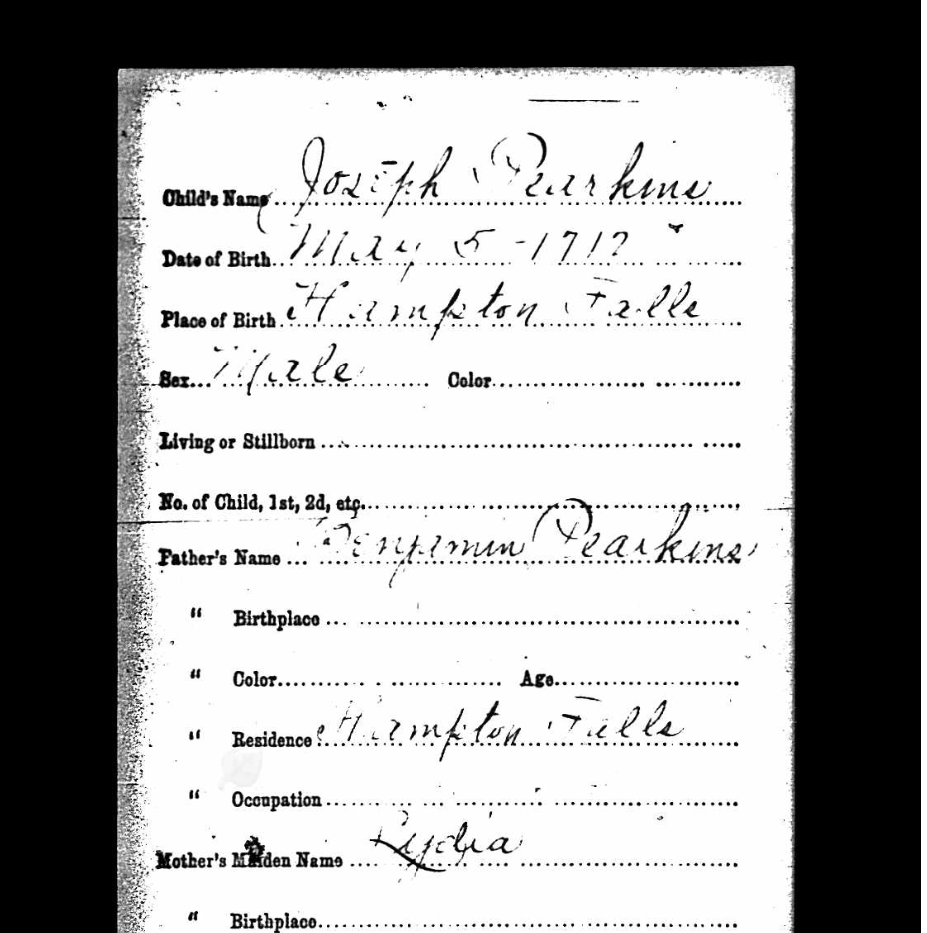 Child's Name Joseph Pearkins
Date of Birth May 5 - 1717
Place of Birth Hampton Falls
Sex Male Color
Living or Stillborn
No. of Child, 1st, 2d, etc.
Father's Name Benjamin Pearkins
" Birthplace
" Color Age
" Residence Hampton Falls
" Occupation
Mother's Maiden Name Lydia
" Birthplace